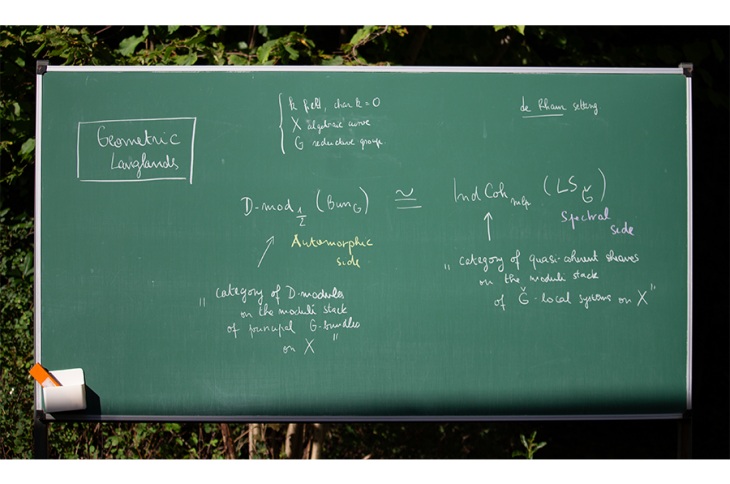 Geometric
Langlands
k field, char k = 0
X algebraic curve
G reductive group
de Rham setting
D-mod_{1/2} (Bun_G) ≅ IndCoh_{Nilp} (LS_Ǧ)
Automorphic
side
Spectral
side
" category of D-modules
on the moduli stack
of principal G-bundles
on X "
" category of quasi-coherent sheaves
on the moduli stack
of Ǧ-local systems on X "